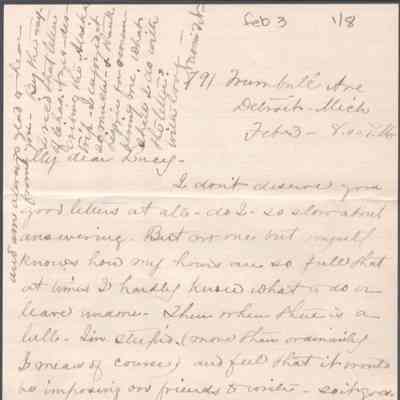 Feb 3 1/8
791 Trumbull Ave
Detroit - Mich
Feb 3 -
My dear Lucy -
I don't deserve your
good letters at all - do I - so slow about
answering. But no one but myself
knows how my hours are so full that
at times I hardly know what to do or
leave undone. Then when there is a
lull - I'm stupid, (more than ordinarily
I mean of course) and feel that it would
be imposing on friends to write - so it goes.
and am always glad to hear
from you - By the way
I
that letter
of the
Alaska
trip - I enjoyed it
so much &
he is for
some one, what
shall I do with
the letter?
with love -